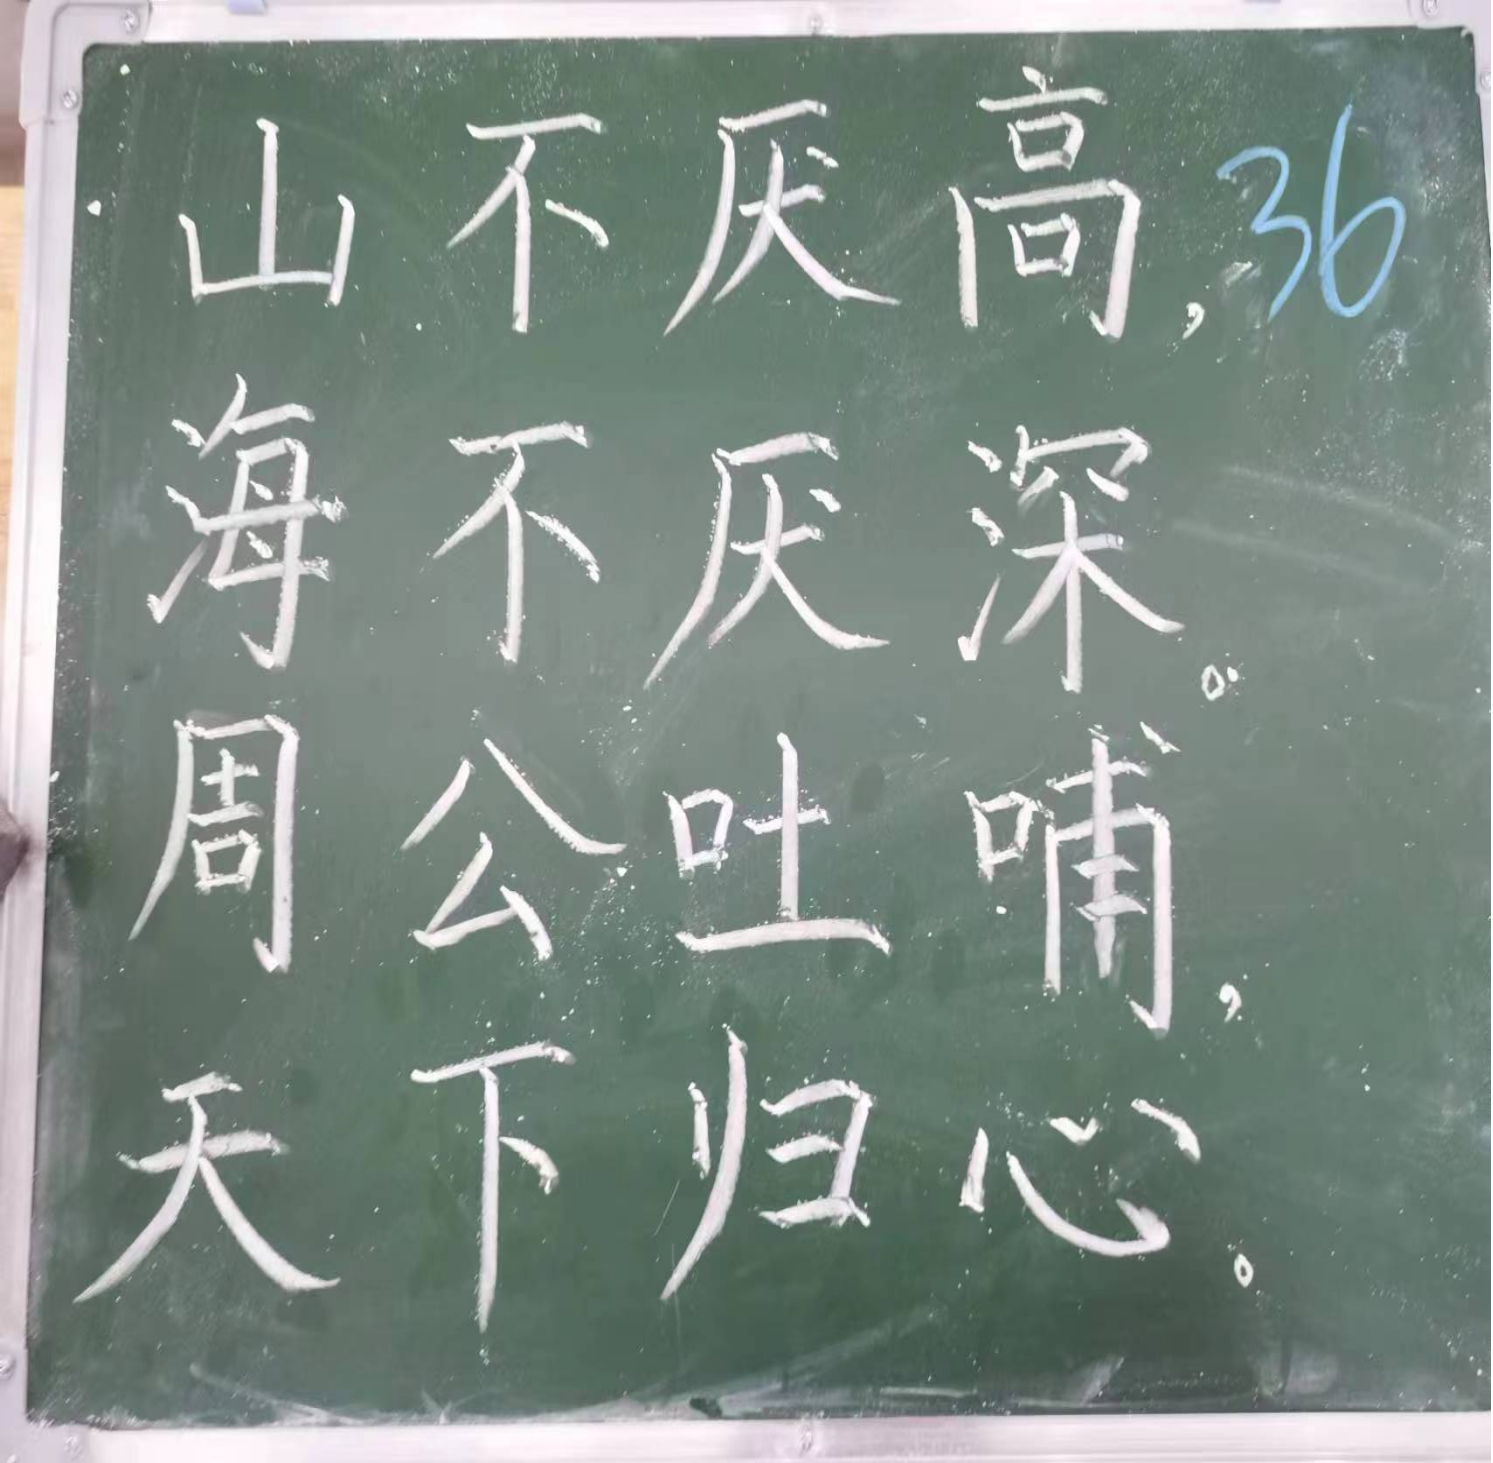 山不厌高，36
海不厌深。
周公吐哺，
天下归心。